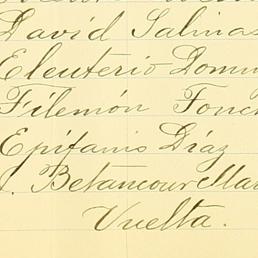 David Salinas
Eleuterio Dom
Filemón Fonc
Epifanio Díaz
Betancourt Ma
Vuelta.